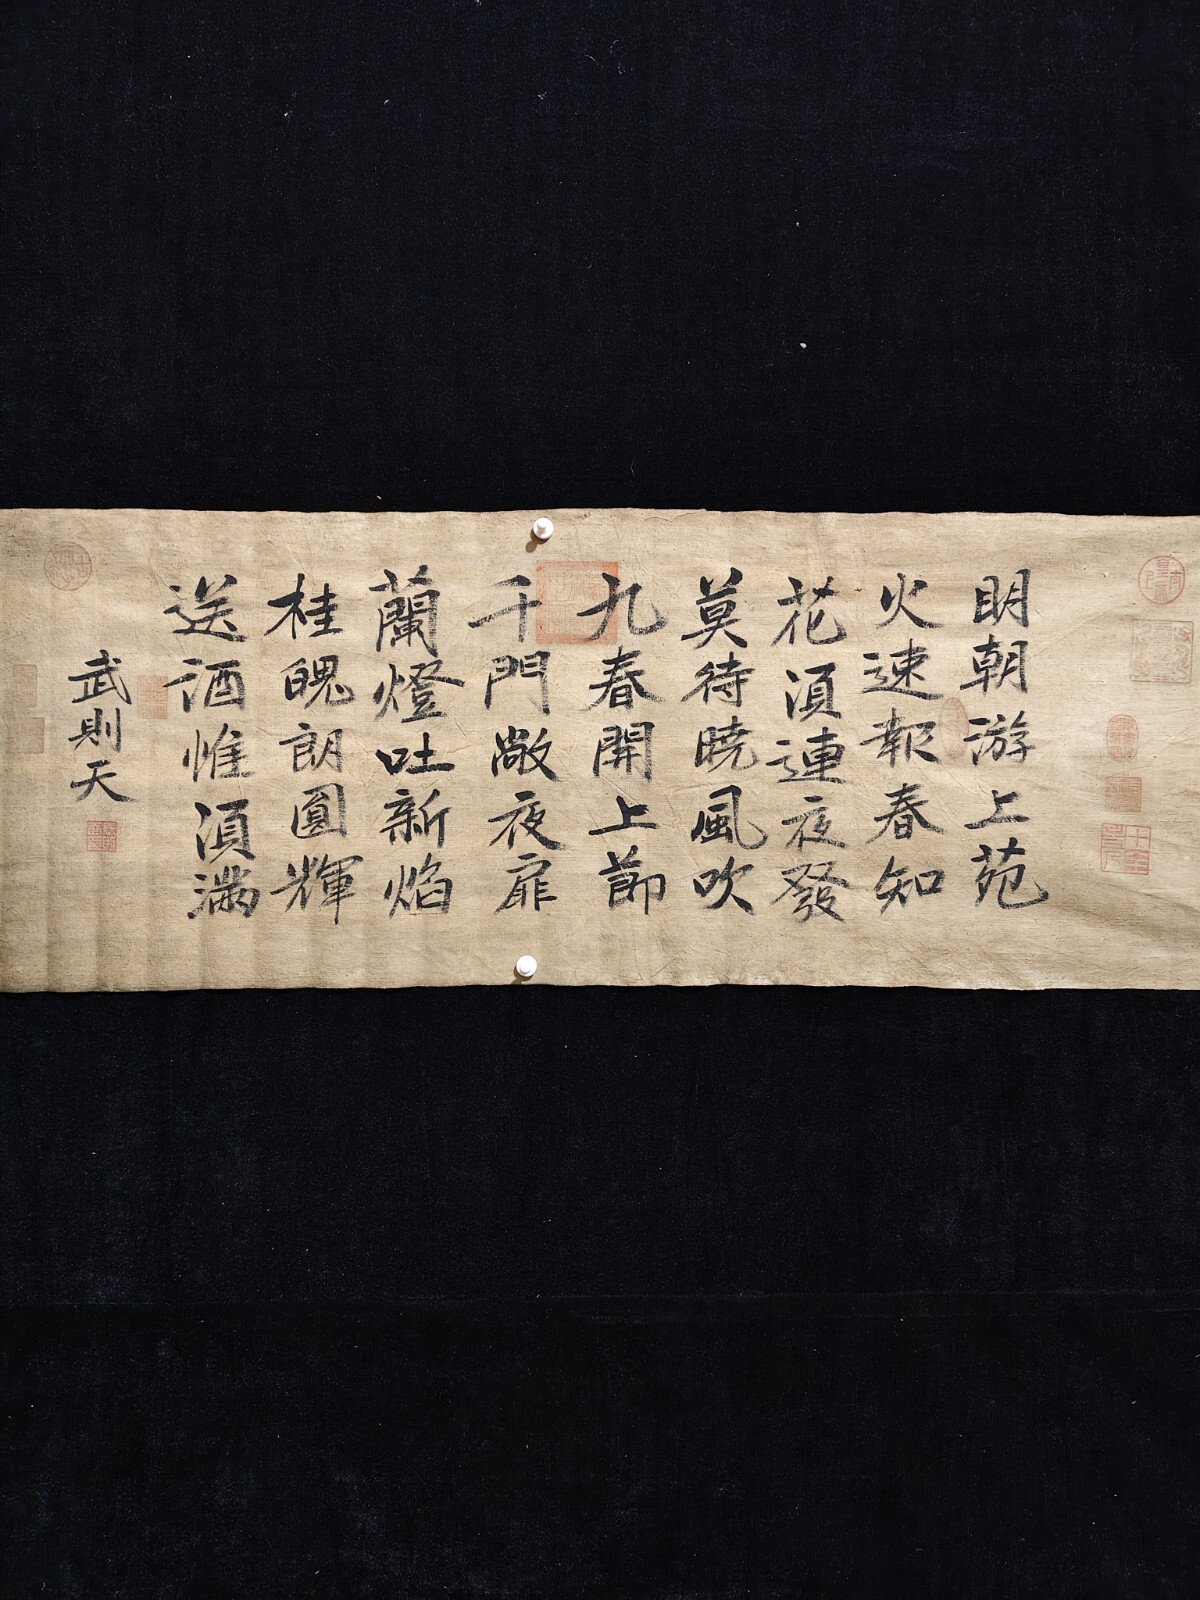 明朝游上苑
火速報春知
花須連夜發
莫待曉風吹
九春開上節
千門敞夜扉
蘭燈吐新焰
桂魄朗圓輝
送酒惟須滿
武則天